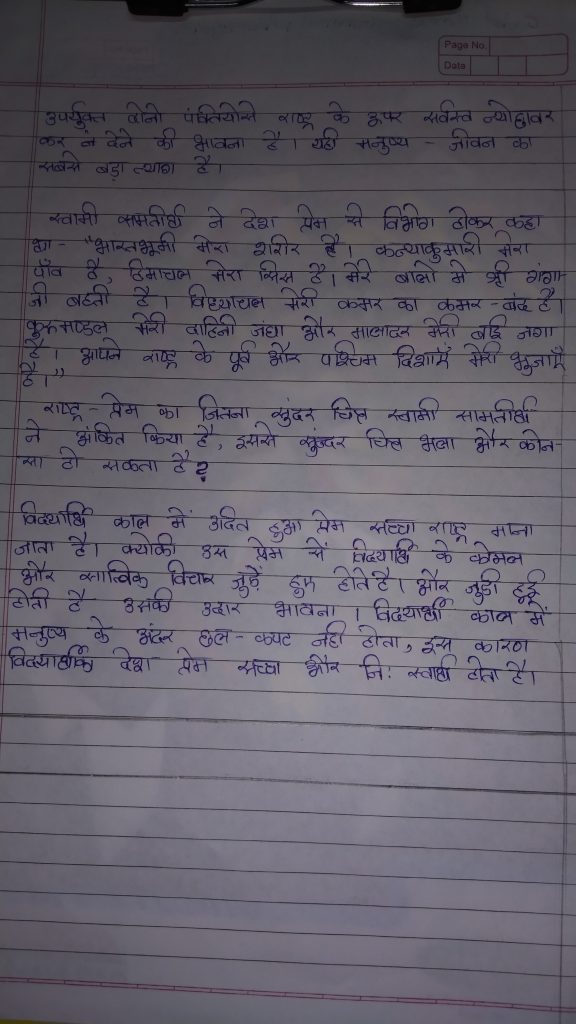 Page No.
Date
उपर्युक्त दोनो पंक्तियोसे राष्ट्र के ऊपर सर्वस्व न्योछावर
कर न देने की भावना है। यही मनुष्य - जीवन का
सबसे बड़ा त्याग है।
स्वामी रामतीर्थ ने देश प्रेम से विभोग होकर कहा
था - "भारतभूमी मेरा शरीर है। कन्याकुमारी मेरा
पाँव है, हिमाचल मेरा सिस है। मेरे बालो मे श्री गंगा-
जी बहती है। विंध्याचल मेरी कमर का कमर - बंद है।
कुरुमण्डल मेरी दाहिनी जंघा और मालाबर मेरी बाई जंगा
है। आपने राष्ट्र के पूर्व और पश्चिम दिशाएँ मेरी भुजाएँ
है।"
राष्ट्र - प्रेम का जितना सुंदर चित्र स्वामी रामतीर्थ
ने अंकित किया है, इससे सुन्दर चित्र भला और कोन-
सा हो सकता है?
विद्यार्थि काल में उदित हुआ प्रेम सच्चा राष्ट्र माना
जाता है। क्योकी उस प्रेम सें विद्यार्थि के कोमल
और सात्विक विचार जुड़ें हुए होते है। और जुडी हुई
होती है उसकी उदार भावना। विद्यार्थी काल में
मनुष्य के अंदर छल - कपट नही होता, इस कारण
विद्यार्थीका देश प्रेम सच्चा और निः स्वार्थ होता है।